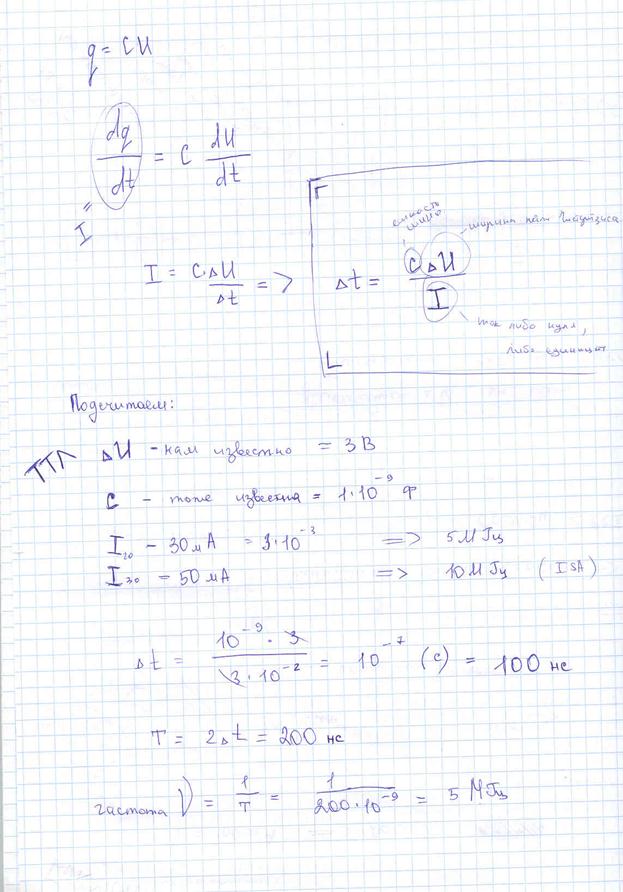 q = CU
dq/dt = C dU/dt
I
I = C·ΔU/Δt =>
емкость
шины
ширина
Δt = CΔU/I
ток либо нуля,
либо единицы
Подсчитаем:
ТТЛ
ΔU - нам известно = 3В
C - тоже известна = 1·10⁻⁹ Ф
I₂₀ - 30мА = 3·10⁻³ => 5МГц
I₃₀ = 50мА => 10МГц (ISA)
Δt = 10⁻⁹·3/3·10⁻² = 10⁻⁷ (с) = 100 нс
T = 2Δt = 200 нс
частота ν = 1/T = 1/200·10⁻⁹ = 5 МГц